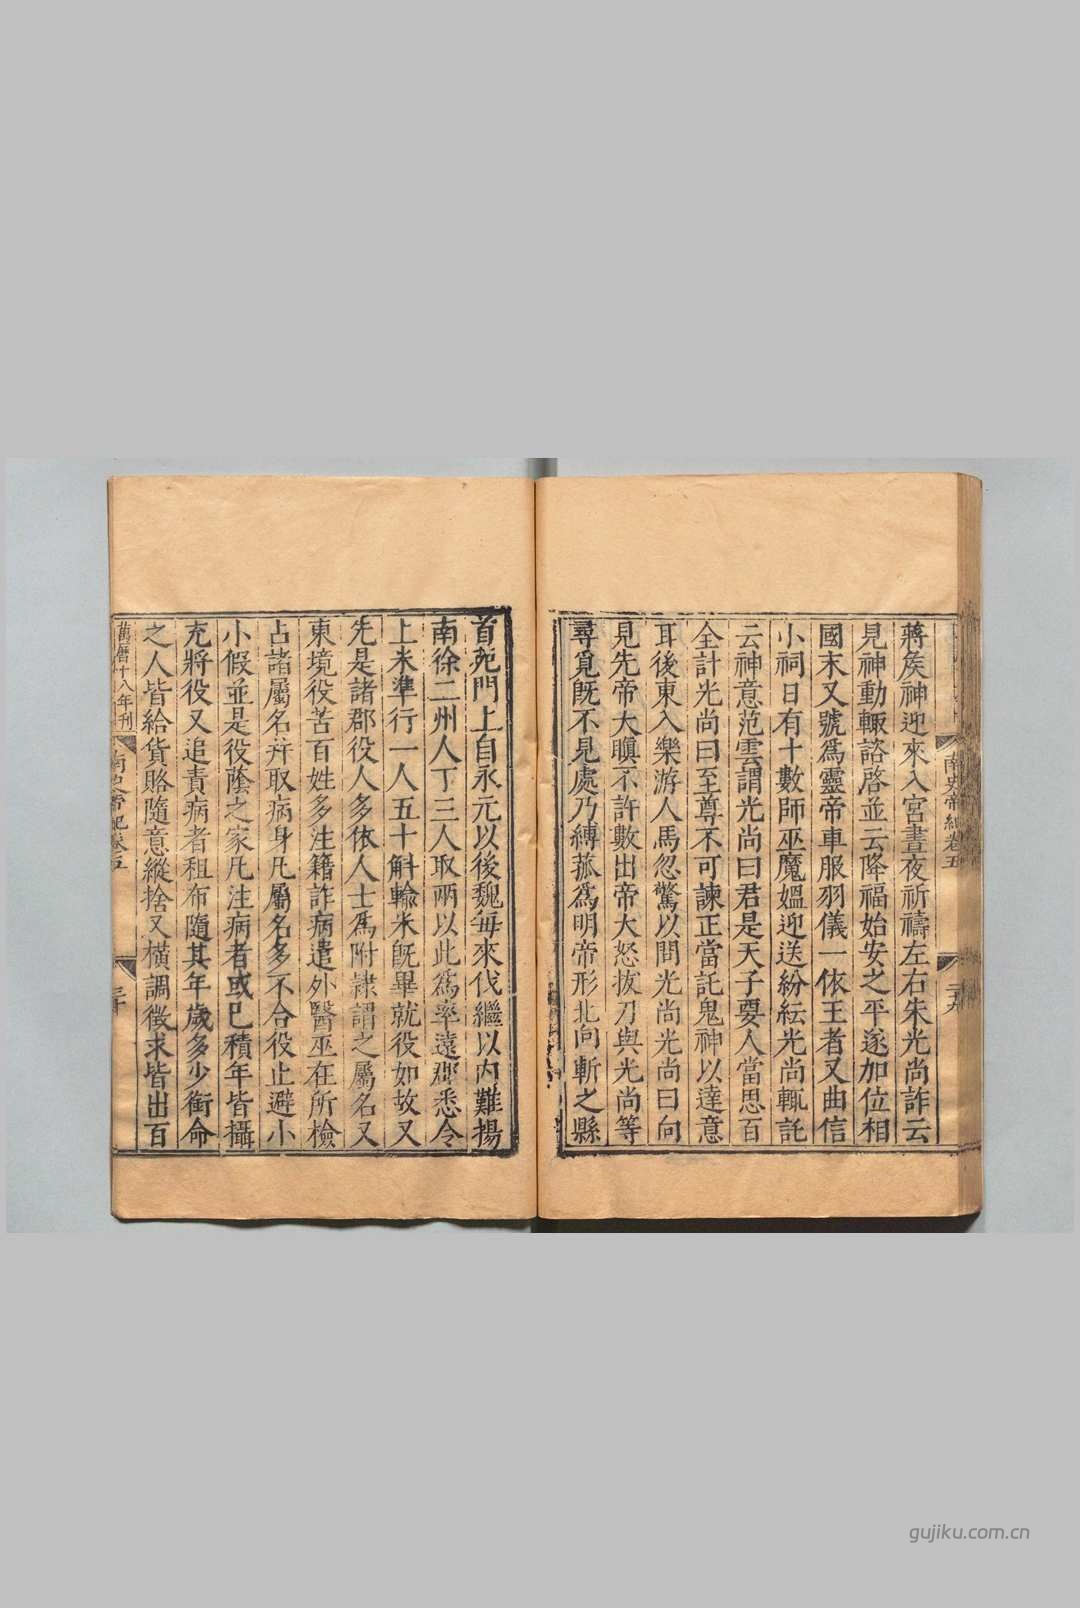 蔣矦神迎來入宮晝夜祈禱左右朱光尚詐云
見神動輙諮啓並云降福始安之平遂加位相
國末又號爲靈帝車服羽儀一依王者又曲信
小祠日有十數師巫魔媼迎送紛紜光尚輒託
云神意范雲謂光尚曰君是天子要人當思百
全計光尚曰至尊不可諫正當託鬼神以達意
耳後東入樂游人馬忽驚以問光尚光尚曰向
見先帝大瞋不許數出帝大怒拔刀與光尚等
尋覓旣不見處乃縛菰爲明帝形北向斬之縣
南史帝紀卷五
二十九
首苑門上自永元以後魏每來伐繼以內難揚
南徐二州人丁三人取兩以此爲率遠郡悉令
上米準行一人五十斛輸米旣畢就役如故又
先是諸郡役人多依人士爲附隸謂之屬名又
東境役苦百姓多注籍詐病遣外醫巫在所檢
占諸屬名并取病身凡屬名多不合役止避小
小假並是役蔭之家凡注病者或已積年皆攝
充將役又追責病者租布隨其年歲多少銜命
之人皆給貨賂隨意縱捨又橫調徵求皆出百
萬曆十八年刊
南史帝紀卷五
三十
gujiku.com.cn